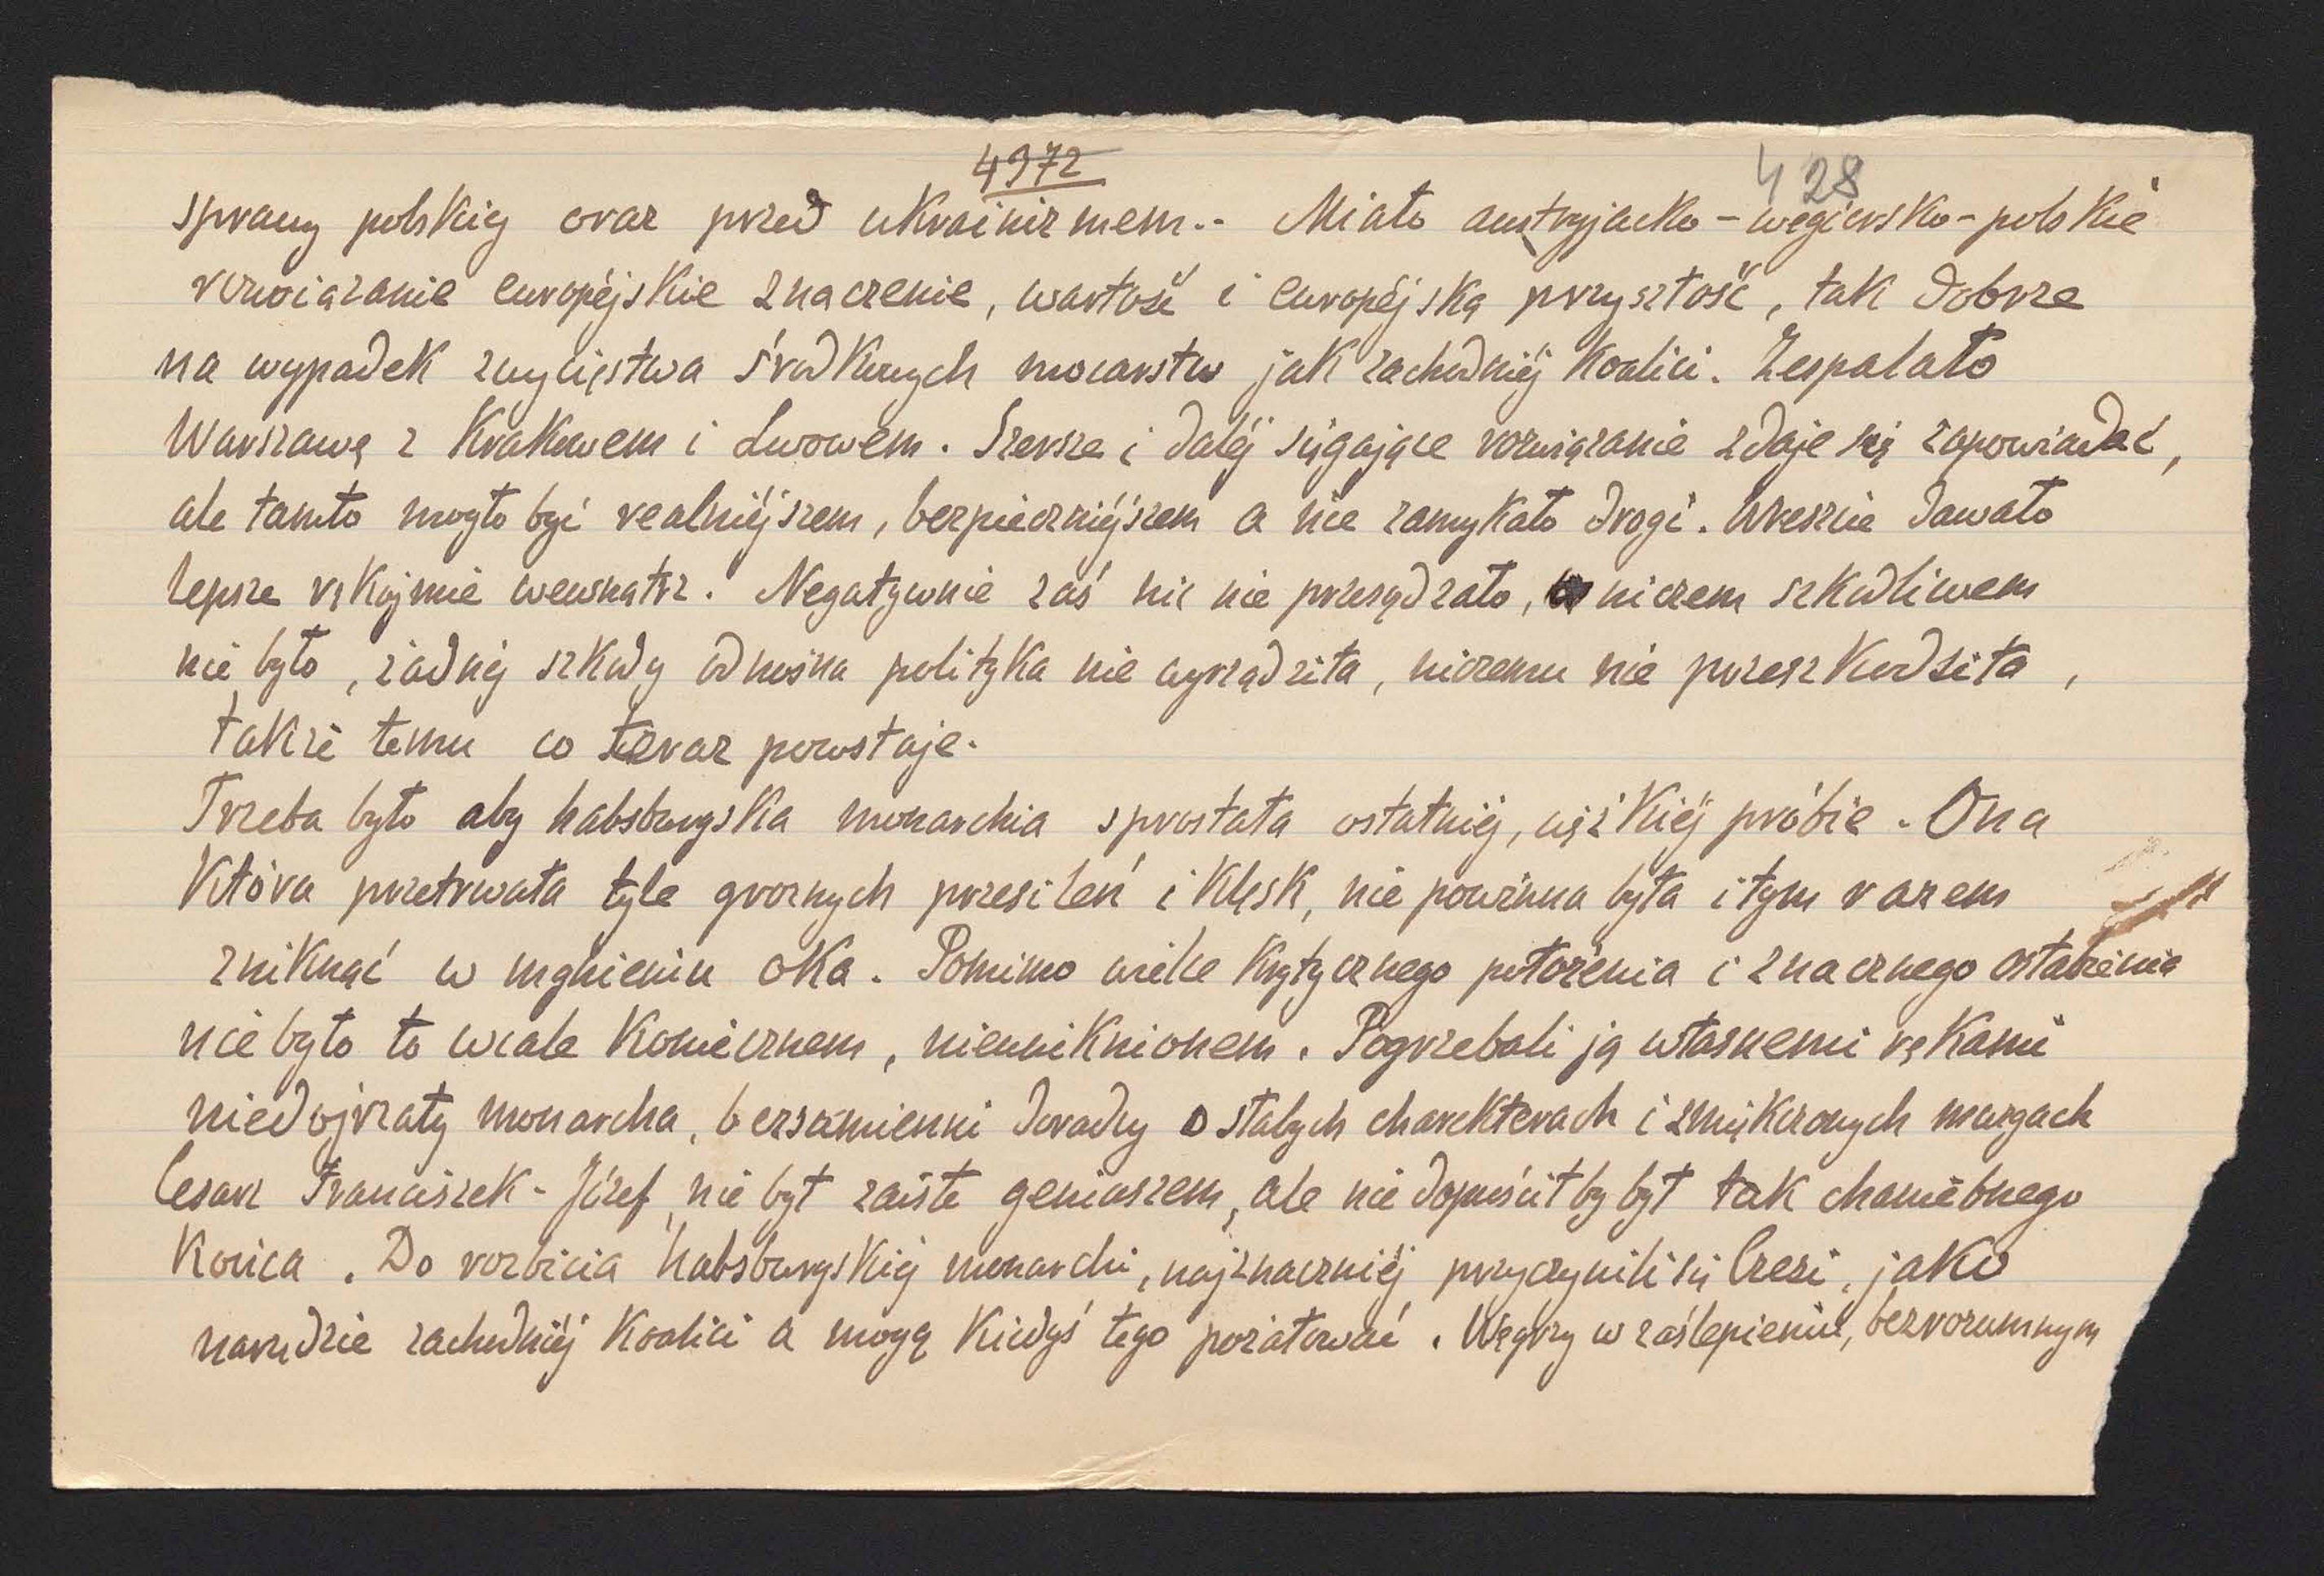 4972
428
sprawy polskiéj oraz przed ukrainizmem.- Miało austryjacko-węgiersko-polskie
rozwiązanie européjskie znaczenie, wartość i européjską przyszłość, tak dobrze
na wypadek zwycięstwa środkowych mocarstw jak zachodniéj Koalici. Zespalało
Warszawę z Krakowem i Lwowem. Szersze i daléj sięgające rozwiązanie zdaje się zapowiadać,
ale tamto mogło być realniéjszem, bezpieczniéjszem a nie zamykało drogi. Wreszcie dawało
lepsze rękojmie wewnątrz. Negatywnie zaś nic nie przesądzało, niczem szkodliwem
nie było, żadnéj szkody odnośna polityka nie wyrządziła, niczemu nie przeszkodziła,
także temu co teraz powstaje.
Trzeba było aby habsburgska monarchia sprostała ostatniéj, ciężkiéj próbie. Ona
która przetrwała tyle groznych przesileń i klęsk, nie powinna była i tym razem
zniknąć w mgnieniu oka. Pomimo wielce krytycznego położenia i znacznego osłabienia
nie było to wcale koniecznem, nieuniknionem. Pogrzebali ją własnemi rękami
niedojrzały monarcha, bezsumienni doradcy o słabych charakterach i zmiękczonych mózgach
Cesarz Franciszek-Józef nie był zaiste geniuszem, ale nie dopuściłby był tak chaniebnego
końca. Do rozbicia habsburgskiéj monarchi, najznaczniéj przyczynili się Czesi, jako
narzędzie zachodniéj Koalici a mogą kiedyś tego pożałować. Węgrzy w zaślepieniu, bezrozumnym